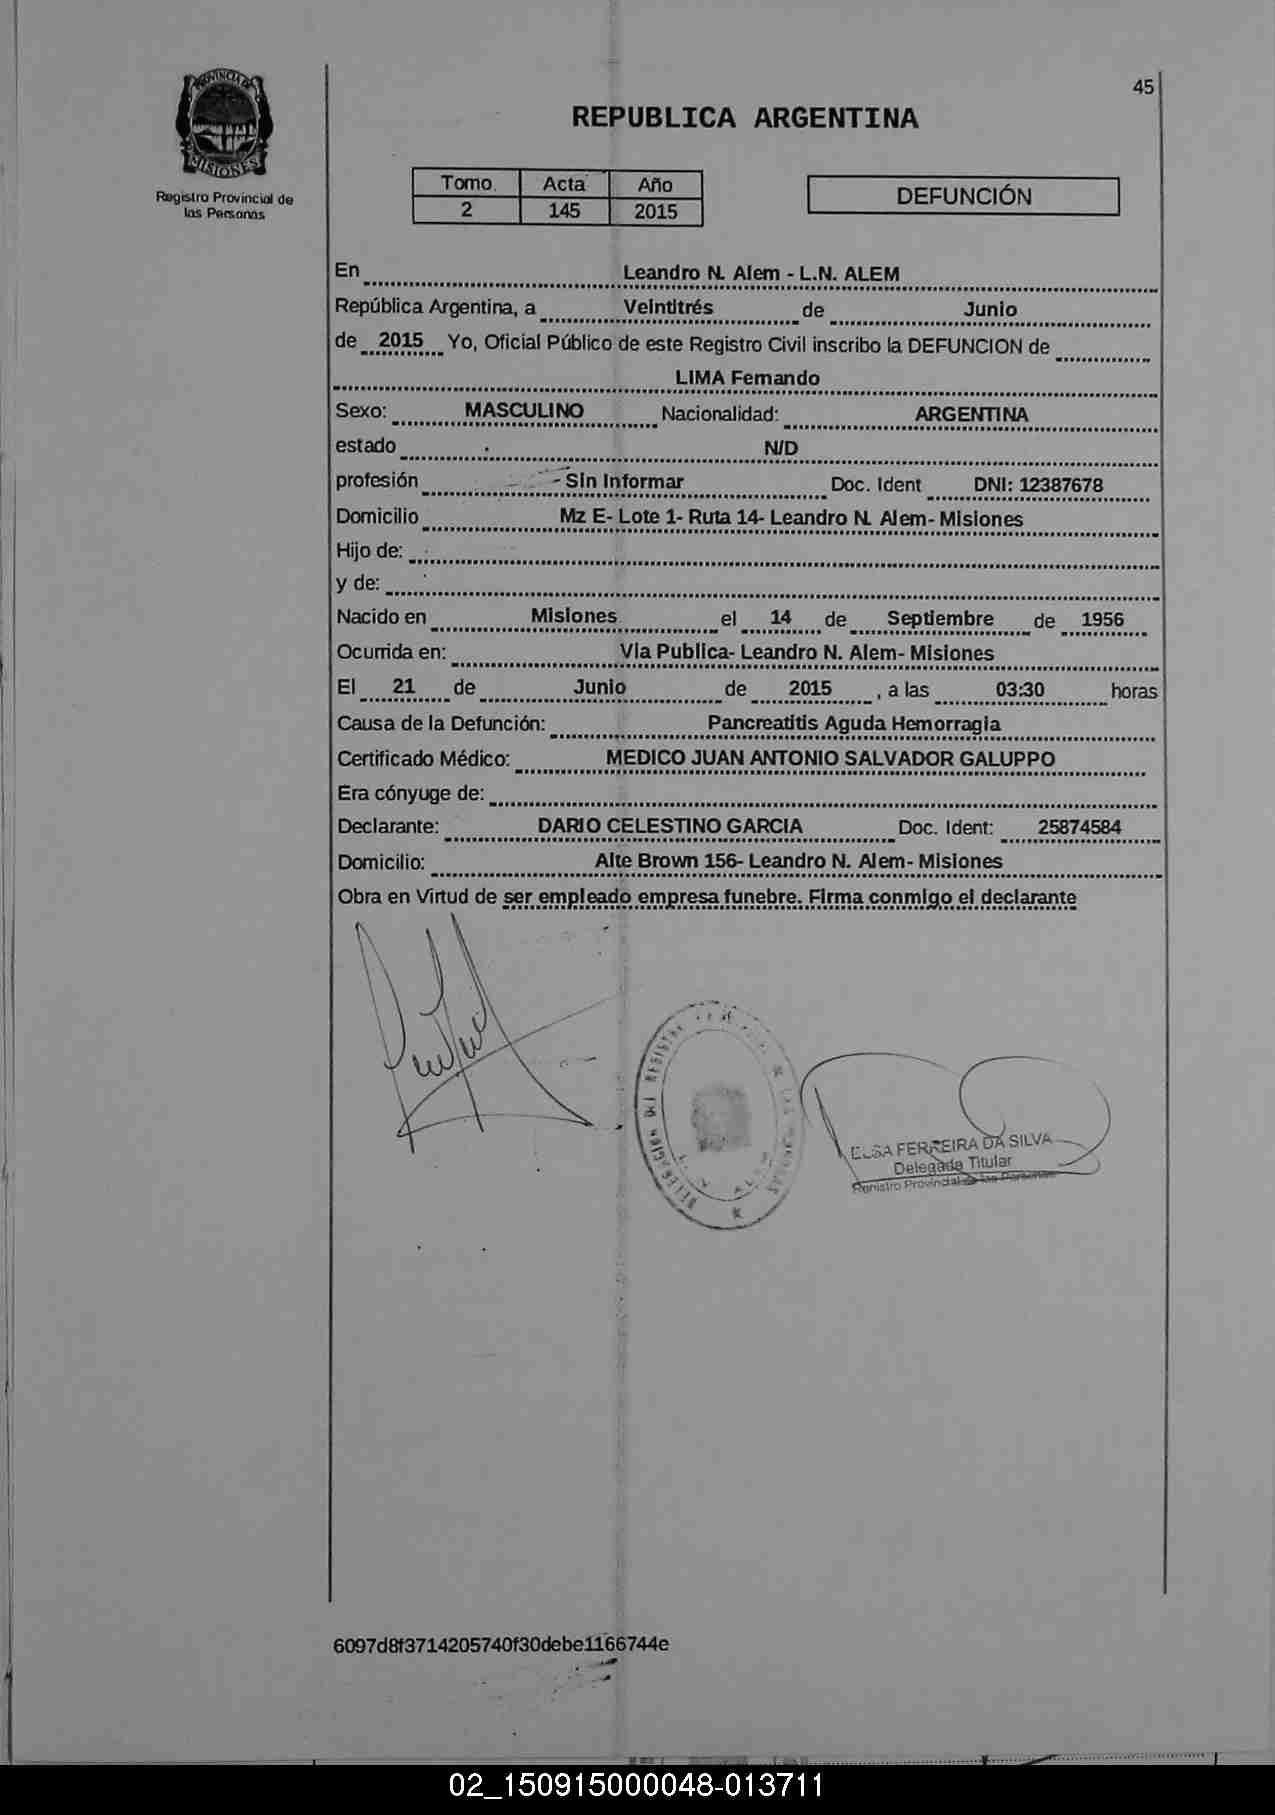 45
PROVINCIA DE
MISIONES
Registro Provincial de
las Personas
REPUBLICA ARGENTINA
Tomo Acta Año
2 145 2015
DEFUNCIÓN
En Leandro N. Alem - L.N. ALEM
República Argentina, a Veintitrés de Junio
de 2015 Yo, Oficial Público de este Registro Civil inscribo la DEFUNCION de
LIMA Fernando
Sexo: MASCULINO Nacionalidad: ARGENTINA
estado N/D
profesión Sin Informar Doc. Ident DNI: 12387678
Domicilio Mz E- Lote 1- Ruta 14- Leandro N. Alem- Misiones
Hijo de:
y de:
Nacido en Misiones el 14 de Septiembre de 1956
Ocurrida en: Via Publica- Leandro N. Alem- Misiones
El 21 de Junio de 2015 , a las 03:30 horas
Causa de la Defunción: Pancreatitis Aguda Hemorragia
Certificado Médico: MEDICO JUAN ANTONIO SALVADOR GALUPPO
Era cónyuge de:
Declarante: DARIO CELESTINO GARCIA Doc. Ident: 25874584
Domicilio: Alte Brown 156- Leandro N. Alem- Misiones
Obra en Virtud de ser empleado empresa funebre. Firma conmigo el declarante
ELSA FERREIRA DA SILVA
Delegada Titular
Registro Provincial de las Personas
6097d8f3714205740f30debe1166744e
02_150915000048-013711